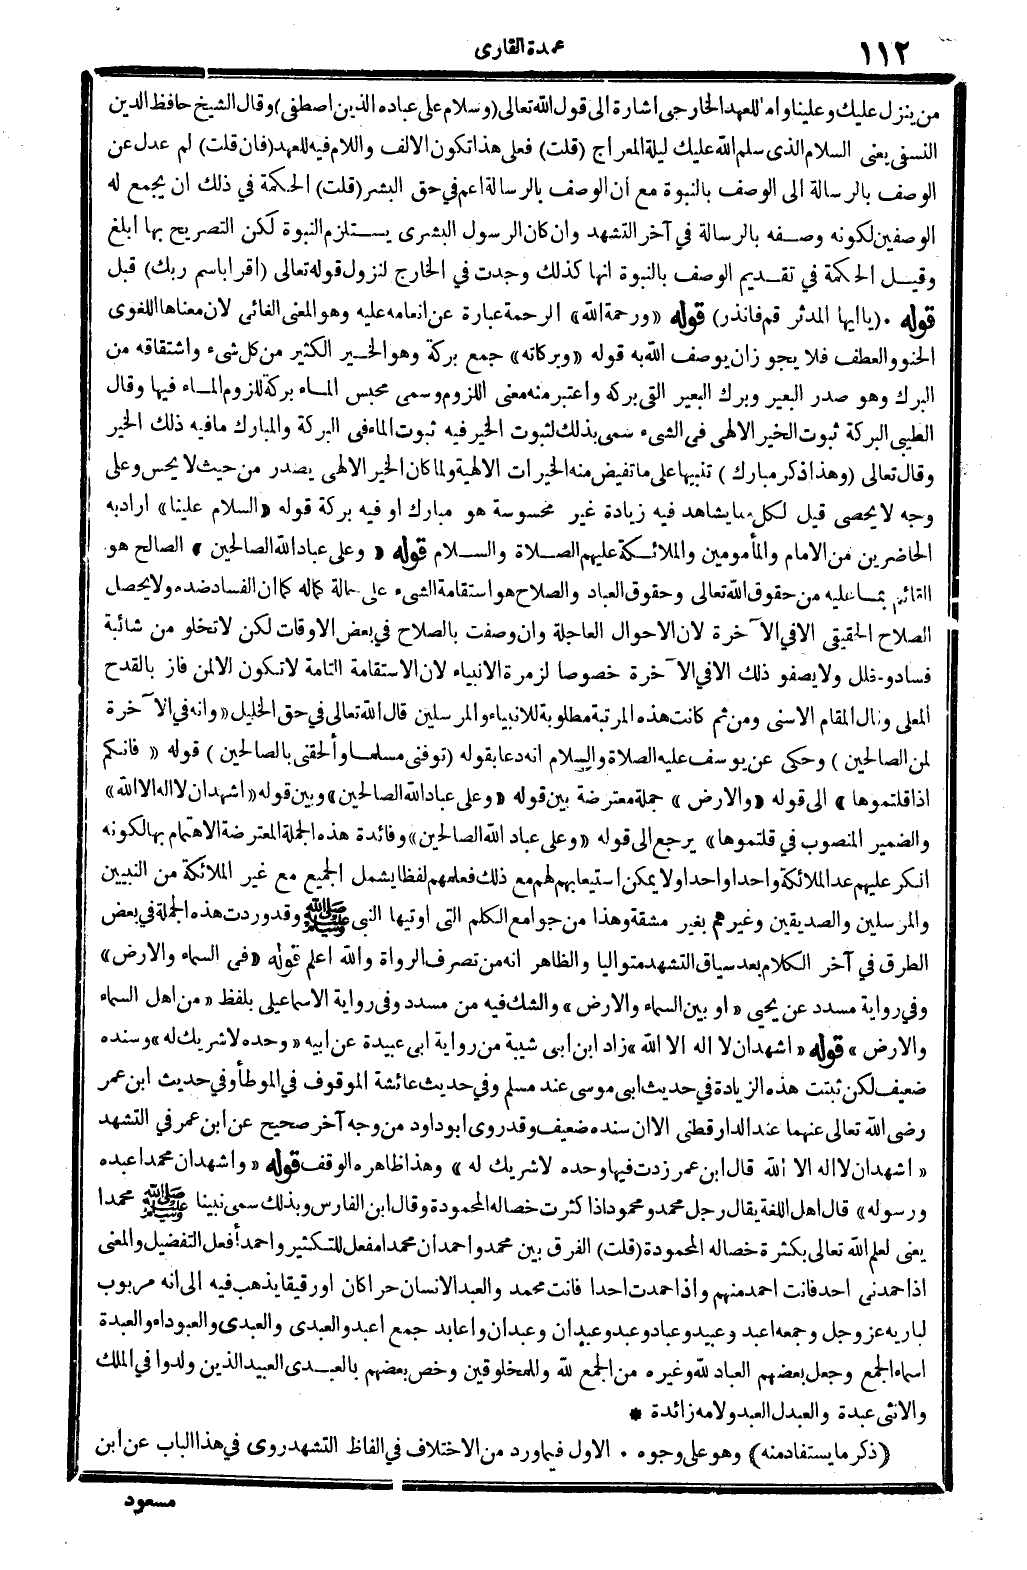 ١١٢
عمدة القارى
من ينزل عليك وعلينا واما للعهد الخارجى اشارة الى قول الله تعالى (وسلام على عباده الذين اصطفى) وقال الشيخ حافظ الدين
النسفى يعنى السلام الذى سلم الله عليك ليلة المعراج (قلت) فعلى هذا تكون الالف واللام فيه للعهد (فان قلت) لم عدل عن
الوصف بالرسالة الى الوصف بالنبوة مع أن الوصف بالرسالة اعم فى حق البشر (قلت) الحكمة في ذلك ان يجمع له
الوصفين لكونه وصفه بالرسالة في آخر التشهد وان كان الرسول البشرى يستلزم النبوة لكن التصريح بها ابلغ
وقيل الحكمة في تقديم الوصف بالنبوة انها كذلك وجدت في الخارج لنزول قوله تعالى (اقرا باسم ربك) قبل
قوله ٠ (يا ايها المدثر قم فانذر) قوله «ورحمة الله» الرحمة عبارة عن انعامه عليه وهو المعنى الغائى لان معناها اللغوى
الحنو والعطف فلا يجوز ان يوصف الله به قوله «وبركاته» جمع بركة وهو الخير الكثير من كل شىء واشتقاقه من
البرك وهو صدر البعير وبرك البعير التى بركه واعتبر منه معنى اللزوم وسمى محبس الماء بركة للزوم الماء فيها وقال
الطيبى البركة ثبوت الخير الالهى فى الشىء سمى بذلك لثبوت الخير فيه ثبوت الماء فى البركة والمبارك مافيه ذلك الخير
وقال تعالى (وهذا ذكر مبارك) تنبيها على ما تفيض منه الخيرات الالهية ولما كان الخير الالهى يصدر من حيث لا يحس وعلى
وجه لا يحصى قيل لكل ما يشاهد فيه زيادة غير محسوسة هو مبارك او فيه بركة قوله «السلام علينا» اراد به
الحاضرين من الامام والمأمومين والملائكة عليهم الصلاة والسلام قوله «وعلى عباد الله الصالحين» الصالح هو
القائم بما عليه من حقوق الله تعالى وحقوق العباد والصلاح هو استقامة الشىء على حالة كماله كما ان الفساد ضده ولا يحصل
الصلاح الحقيقى الا في الآخرة لان الاحوال العاجلة وان وصفت بالصلاح في بعض الاوقات لكن لا تخلو من شائبة
فساد وخلل ولا يصفو ذلك الا في الآخرة خصوصا لزمرة الانبياء لان الاستقامة التامة لا تكون الا لمن فاز بالقدح
المعلى ونال المقام الاسنى ومن ثم كانت هذه المرتبة مطلوبة للانبياء والمرسلين قال الله تعالى في حق الخليل «وانه في الآخرة
لمن الصالحين) وحكى عن يوسف عليه الصلاة والسلام انه دعا بقوله (توفنى مسلما وألحقنى بالصالحين) قوله «فانكم
اذا قلتموها» الى قوله «والارض» جملة معترضة بين قوله «وعلى عباد الله الصالحين» وبين قوله «اشهد ان لا اله الا الله»
والضمير المنصوب في قلتموها» يرجع الى قوله «وعلى عباد الله الصالحين» وفائدة هذه الجملة المعترضة الاهتمام بها لكونه
انكر عليهم عد الملائكة واحدا واحدا ولا يمكن استيعابهم لهم مع ذلك فعلمهم لفظا يشمل الجميع مع غير الملائكة من النبيين
والمرسلين والصديقين وغيرهم بغير مشقة وهذا من جوامع الكلم التى اوتيها النبى ﷺ وقد وردت هذه الجملة في بعض
الطرق في آخر الكلام بعد سياق التشهد متواليا والظاهر انه من تصرف الرواة والله اعلم قوله «فى السماء والارض»
وفي رواية مسدد عن يحيى «او بين السماء والارض» والشك فيه من مسدد وفى رواية الاسماعيلى بلفظ «من اهل السماء
والارض» قوله «اشهد ان لا اله الا الله» زاد ابن ابى شيبة من رواية ابى عبيدة عن ابيه «وحده لا شريك له» وسنده
ضعيف لكن ثبتت هذه الزيادة في حديث ابى موسى عند مسلم وفي حديث عائشة الموقوف في الموطأ وفي حديث ابن عمر
رضى الله تعالى عنهما عند الدارقطنى الا ان سنده ضعيف وقد روى ابو داود من وجه آخر صحيح عن ابن عمر في التشهد
«اشهد ان لا اله الا الله قال ابن عمر زدت فيها وحده لا شريك له» وهذا ظاهره الوقف قوله «واشهد ان محمدا عبده
ورسوله» قال اهل اللغة يقال رجل محمد ومحمود اذا كثرت خصاله المحمودة وقال ابن الفارس وبذلك سمى نبينا ﷺ محمدا
يعنى لعلم الله تعالى بكثرة خصاله المحمودة (قلت) الفرق بين محمد واحمد ان محمدا مفعل للتكثير واحمد أفعل التفضيل والمعنى
اذا حمدنى احد فانت احمد منهم واذا حمدت احدا فانت محمد والعبد الانسان حرا كان او رقيقا يذهب فيه الى انه مربوب
لباريه عز وجل وجمعه اعبد وعبيد وعباد وعبد وعبدان وعبدان واعابد جمع اعبد والعبدى والعبدى والعبوداء والعبدة
اسماء الجمع وجعل بعضهم العباد لله وغيره من الجمع لله وللمخلوقين وخص بعضهم بالعبدى العبيد الذين ولدوا في الملك
والانثى عبدة والعبدل العبد ولامه زائدة *
(ذكر ما يستفاد منه) وهو على وجوه ٠ الاول فيما ورد من الاختلاف في الفاظ التشهد روى في هذا الباب عن ابن
مسعود